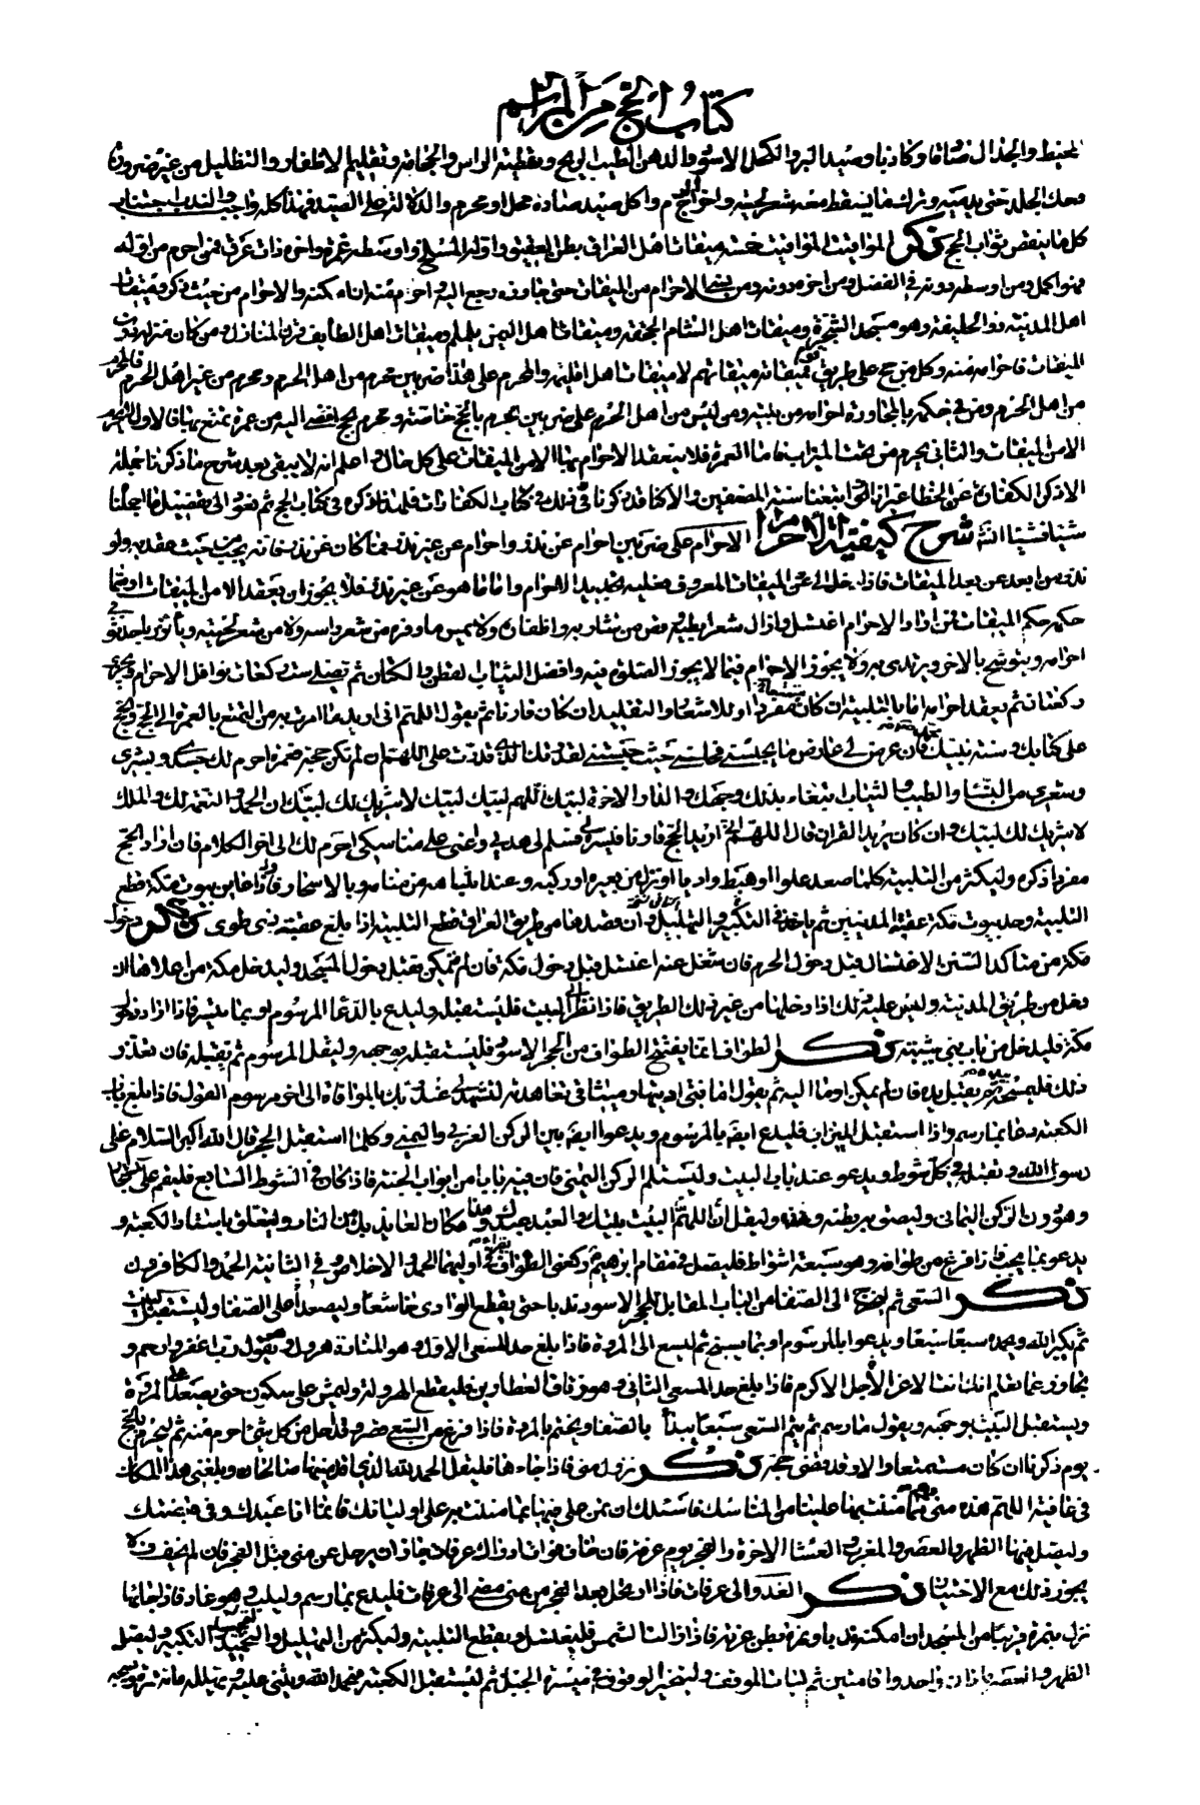 كتاب الحج من المراسم
المخيط والجدال صادقا وكاذبا وصيد البر والكحل الاسود والدهن الطيب الريح وتغطية الراس والحجامة وتقليم الاظفار والتظليل من غير ضرورة
وحك الجلد حتى يدميه و ما يسقط معه شعر لحيته واخراج دم واكل صيد صاده محل او محرم والدلالة على الصيد فهذا كله واجب والندب اجتناب
كل ما ينقض ثواب الحج ذكر المواقيت المواقيت خمسة ميقات اهل العراق بطن العقيق واوله المسلخ واوسطه غمرة واخره ذات عرق فمن احرم من اوله
فهو اكمل ومن اوسطه دونه في الفضل ومن اخره دونه ومن نسى الاحرام من الميقات حتى جاوزه رجع اليه واحرم منه ان امكنه والا احرم من حيث ذكر وميقات
اهل المدينة ذو الحليفة وهو مسجد الشجرة وميقات اهل الشام الجحفة وميقات اهل اليمن يلملم وميقات اهل الطايف قرن المنازل ومن كان منزله دون
الميقات فاحرامه منه وكل من حج على طريق فميقاته ميقاتهم لا ميقات اهل اقليمه والمحرم على هذا ضربين محرم من اهل الحرم ومحرم من غير اهل الحرم فالمحرم
من اهل الحرم ومن في حكمهم بالمجاورة احرامه من بيته ومن ليس من اهل الحرم على ضربين محرم بالحج خاصة ومحرم بحج افضى اليه من عمرة تمتع بها فالاول
الا من الميقات والثاني يحرم من تحت الميزاب فاما العمرة فلا ينعقد الاحرام بها الا من الميقات على كل حال واعلم انه لا يبقى بعد شرح ما ذكرنا جملته
الا ذكر الكفارة عن الخطا غير انا اتبعنا سنة المصنفين والا كنا قد ذكرنا ذلك في كتاب الكفارات فلهذا ذكره في كتاب الحج ثم نعود الى تفصيل ما اجملنا
شيئا فشيئا انشا شرح كيفية الاحرام الاحرام على ضربين احرام عن نذر واحرام عن غير نذر فما كان عن نذر فانه يجب من حيث عقد به ولو
نذر من ابعد عن بعد الميقات فاذا دخل الى عين الميقات المعروف فعليه تجديد الاحرام واما ما هو عن غير نذر فلا يجوز ان يعقد الا من الميقات او مما
حكمه حكم الميقات فمن اراد الاحرام اغتسل وازال شعر ابطيه وقص من شاربه واظفاره ولا يمس ما وفر من شعر راسه ولا من شعر لحيته وياتزر باحد ثوبي
احرامه ويتوشح بالاخر ويرتدي به ولا يجوز الاحرام فيما لا يجوز الصلوة فيه وافضل الثياب القطن والكتان ثم تصلي ست ركعات نوافل الاحرام ويجزي
ركعتان ثم يعقد احرامه اما بالتلبية ان كان مفردا او بالاشعار والتقليد ان كان قارنا ثم يقول اللهم اني اريد ما امرت به من التمتع بالعمرة الى الحج
على كتابك وسنة نبيك فان عرض لي عارض ما يحبسني فحلني حيث حبستني لقدرتك الذي قدرت علي اللهم ان لم تكن حجة فعمرة احرم لك جسدي وبشري
وشعري من النسا والطيب والثياب ابتغاء بذلك وجهك والدار الاخرة لبيك اللهم لبيك لبيك لا شريك لك لبيك ان الحمد والنعمة لك والملك
لا شريك لك لبيك وان كان يريد القران قال اللهم اني اريد الحج قارنا فسلم لي هديي واعني على مناسكي احرم لك الى اخر الكلام فان اراد الحج
مفردا ذكره وليكثر من التلبية كلما صعد علوا او هبط واديا او نزل من بعيره او ركبه وعند انتباهه من منامه وبالاسحار فاذا عاين بيوت مكة قطع
التلبية وحد بيوت مكة عقبة المدنيين ثم ياخذ في التكبير والتهليل وان قصدها من طريق العراق قطع التلبية اذا بلغ عقبة ذي طوى ذكر دخول
مكة من مناكد السنن الاغتسال قبل دخول الحرم فان شغل عنه اغتسل قبل دخول مكة فان لم يتمكن فقبل دخول المسجد وليدخل مكة من اعلاها ان
دخل من طريق المدينة وليس عليه ذلك اذا دخلها من غير ذلك الطريق فاذا نظر الى البيت فليستقبله وليدع بالدعا المرسوم او بما تيسر فاذا اراد دخول
مكة فليدخل من باب بني شيبة ذكر الطواف انما يفتتح الطواف من الحجر الاسود فليستقبله بوجهه وليقل المرسوم ثم يقبله فان تعذر
ذلك فليمسحه بيده ثم يقبل يده فان لم يمكن اوما اليه ثم يقول امانتي اديتها وميثاقي تعاهدته لتشهد لي عند ربك بالموافاة الى اخر مرسوم القول فاذا بلغ باب
الكعبة دعا بما رسم واذا استقبل الميزاب فليدع ايضا بالمرسوم ويدعو ايضا بين الركن الغربي واليمني وكلما استقبل الحجر قال الله اكبر السلام على
رسول الله وتقبله في كل شوط ويدعو عند باب البيت وليستلم الركن اليمني فان فيه بابا من ابواب الجنة فاذا كان في الشوط السابع فليقم على المستجار
وهو دون الركن اليماني وليصق به بطنه وخده وليقل اللهم البيت بيتك والعبد عبدك وهذا مكان العايذ بك من النار وليتعلق باستار الكعبة و
يدعو بما يحب فاذا فرغ من طوافه وهو سبعة اشواط فليصل في مقام ابرهيم ركعتي الطواف يقرا في اوليهما الحمد والاخلاص وفي الثانية الحمد والكافرون
ذكر السعى ثم ليخرج الى الصفا من الباب المقابل للحجر الاسود حتى يقطع الوادي خاشعا وليصعد اعلى الصفا وليستقبل البيت
ثم يكبر الله ويحمده سبعا سبعا ويدعو بالمرسوم او بما يسنح ثم ليسع الى المروة فاذا بلغ حد المسعى الاول وهو المنارة هرول ويقول رب اغفر وارحم و
تجاوز عما تعلم انك انت الاعز الاجل الاكرم فاذا بلغ حد المسعى الثاني وهو زقاق العطارين فليقطع الهرولة وليمش على سكون حتى يصعد المروة
ويستقبل البيت بوجهه ويقول ما رسم ثم يتم السعي سبعا يبدأ بالصفا ويختم بالمروة فاذا فرغ من السعى قصر وقد احل من كل شئ احرم منه ثم ليحرم بالحج
يوم ذكرنا ان كان متمتعا والا وقد قضى حجه ذكر نزول منى فاذا جاءها فليقل الحمد لله الذي اقدمنيها صالحا وبلغني هذا المكان
في عافية اللهم هذه منى وهي مما مننت بها علينا من المناسك فاسئلك ان تمن علي فيها بما مننت به على اوليائك فانما انا عبدك وفي قبضتك
وليصل فيها الظهر والعصر والمغرب والعشا الاخرة والفجر يوم عرفة فان خاف فوات ادراك عرفات جاز ان يرحل عن منى قبل الفجر فان لم يخف فلا
يجوز ذلك مع الاختيار ذكر الغدو الى عرفات فاذا ارتحل بعد الفجر من منى مضى الى عرفات فليدع بما رسم وليلب وهو غاد فاذا جاءها
نزل بنمرة قريبا من المسجد ان امكنه ونمرة بطن عرنة فاذا زالت الشمس فليغتسل ويقطع التلبية وليكثر من التهليل والتحميد والتكبير وليصل
الظهر والعصر باذان واحد واقامتين ثم ليات الموقف وليختر الوقوف في ميسرة الجبل ثم ليستقبل الكعبة فيحمد الله ويثني عليه ويهلله مائة مرة ويسبحه